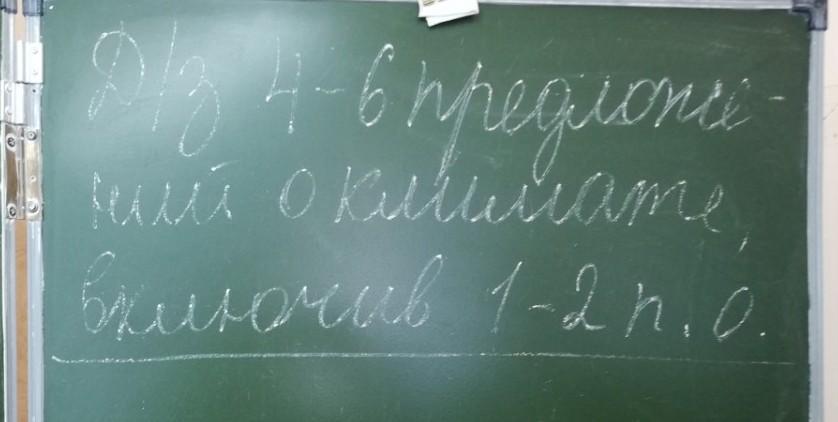 Д/з 4-6 предложе-
ний о климате,
включив 1-2 п.о.